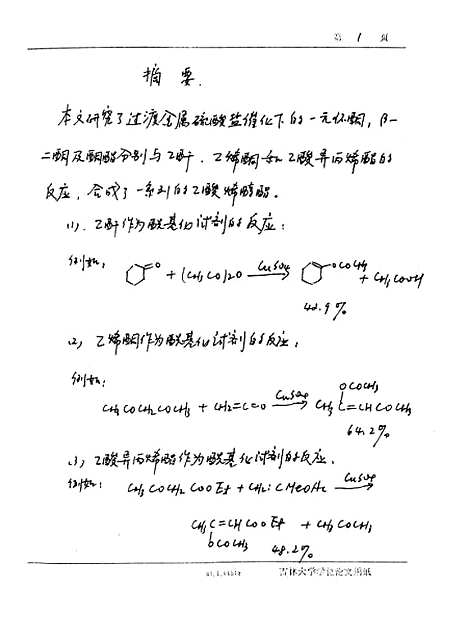 第 1 页
摘 要.
本文研究了过渡金属硫酸盐催化下的一元环酮, β-
二酮及酮酯分别与乙酐、乙烯酮和乙酸异丙烯酯的
反应, 合成了一系列的乙酸烯醇酯。
(1), 乙酐作为酰基化试剂的反应:
例如:
O + (CH3CO)2O CuSO4 OCOCH3 + CH3COOH
48.9%
(2), 乙烯酮作为酰基化试剂的反应:
例如:
CH3COCH2COCH3 + CH2=C=O CuSO4 CH3C=CHCOCH3
OCOCH3
64.2%
(3), 乙酸异丙烯酯作为酰基化试剂的反应.
例如: CH3COCH2COOEt + CH2:CMeOAc CuSO4
CH3C=CHCOOEt + CH3COCH3
OCOCH3 48.2%
吉林大学学位论文用纸